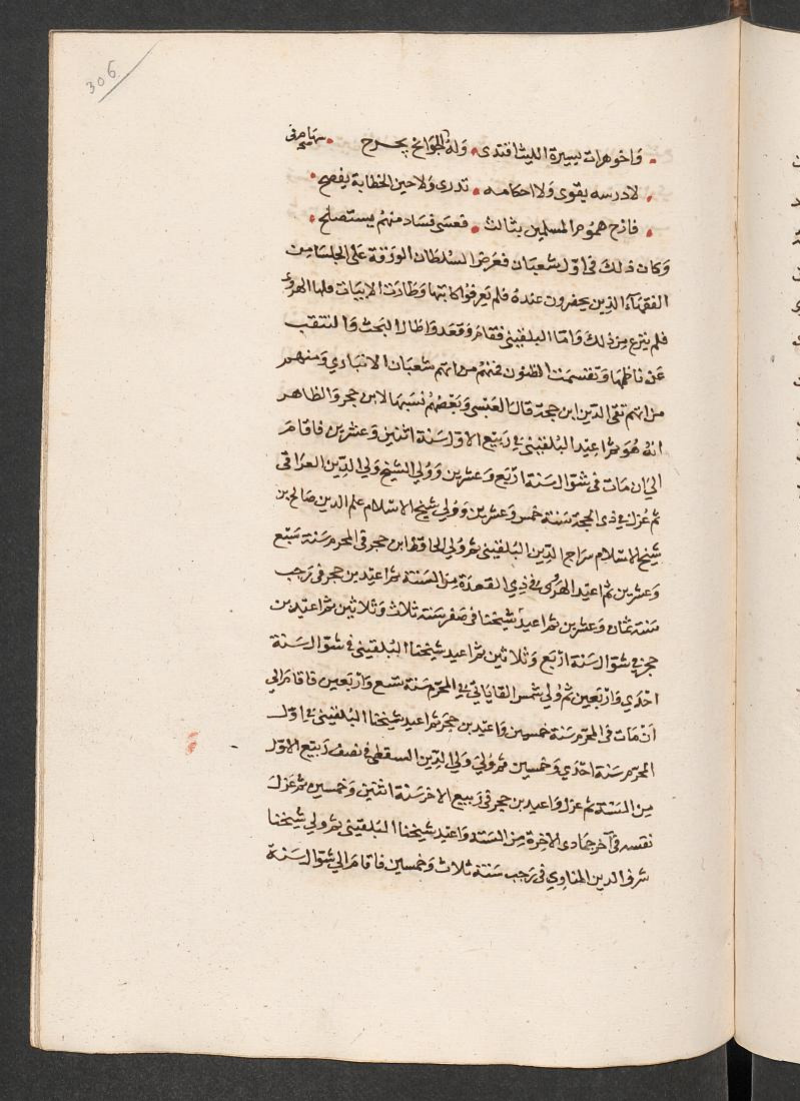 306
وأخو هراة بسيرة الليث اقتدى وله الجوائح يجرح
لا درسه يقوى ولا احكامه تدرى ولا حين الخطابة يفصح
فازح هموم المسلمين بثالث فعسى فساد منهم يستصلح
وكان ذلك في اول شعبان فعرض السلطان الورقة على الجلسا من
الفقهاء الذين يحضرون عنده فلم يعرفوا كاتبها وطارت الابيات فاما الهروي
فلم ينزعج من ذلك واما البلقيني فقام وقعد واطال البحث والتنقيب
عن ناظمها وتقسمت الظنون فمنهم من اتهم شعبان الاثاري ومنهم
من اتهم تقي الدين ابن حجة قال العيني وبعضهم نسبها لابن حجر والظاهر
انه هو ثم اعيد البلقيني في ربيع الاول سنة اثنين وعشرين فاقام
الى ان مات في شوال سنة اربع وعشرين وولي الشيخ ولي الدين العراقي
ثم عزل في ذي الحجة سنة خمس وعشرين وولي شيخ الاسلام علم الدين صالح بن
شيخ الاسلام سراج الدين البلقيني ثم ولي الحافظ ابن حجر في المحرم سنة سبع
وعشرين ثم اعيد الهروي في ذي القعدة من السنة ثم اعيد بن حجر في رجب
سنة ثمان وعشرين ثم اعيد شيخنا في صفر سنة ثلاث وثلاثين ثم اعيد بن
حجر في شوال سنة اربع وثلاثين ثم اعيد شيخنا البلقيني في شوال سنة
احدي واربعين ثم ولي شمس القاياتي في المحرم سنة تسع واربعين فاقام الي
ان مات في المحرم سنة خمسين واعيد بن حجر ثم اعيد شيخنا البلقيني في اول
المحرم سنة احدي وخمسين ثم ولي ولي الدين السقطي في نصف ربيع الاول
من السنة ثم عزل واعيد بن حجر في ربيع الاخر سنة اثنين وخمسين ثم عزل
نفسه في آخر جمادى الاخرة من السنة واعيد شيخنا البلقيني ثم ولي شيخنا
شرف الدين المناوي في رجب سنة ثلاث وخمسين فاقام الي شوال سنة